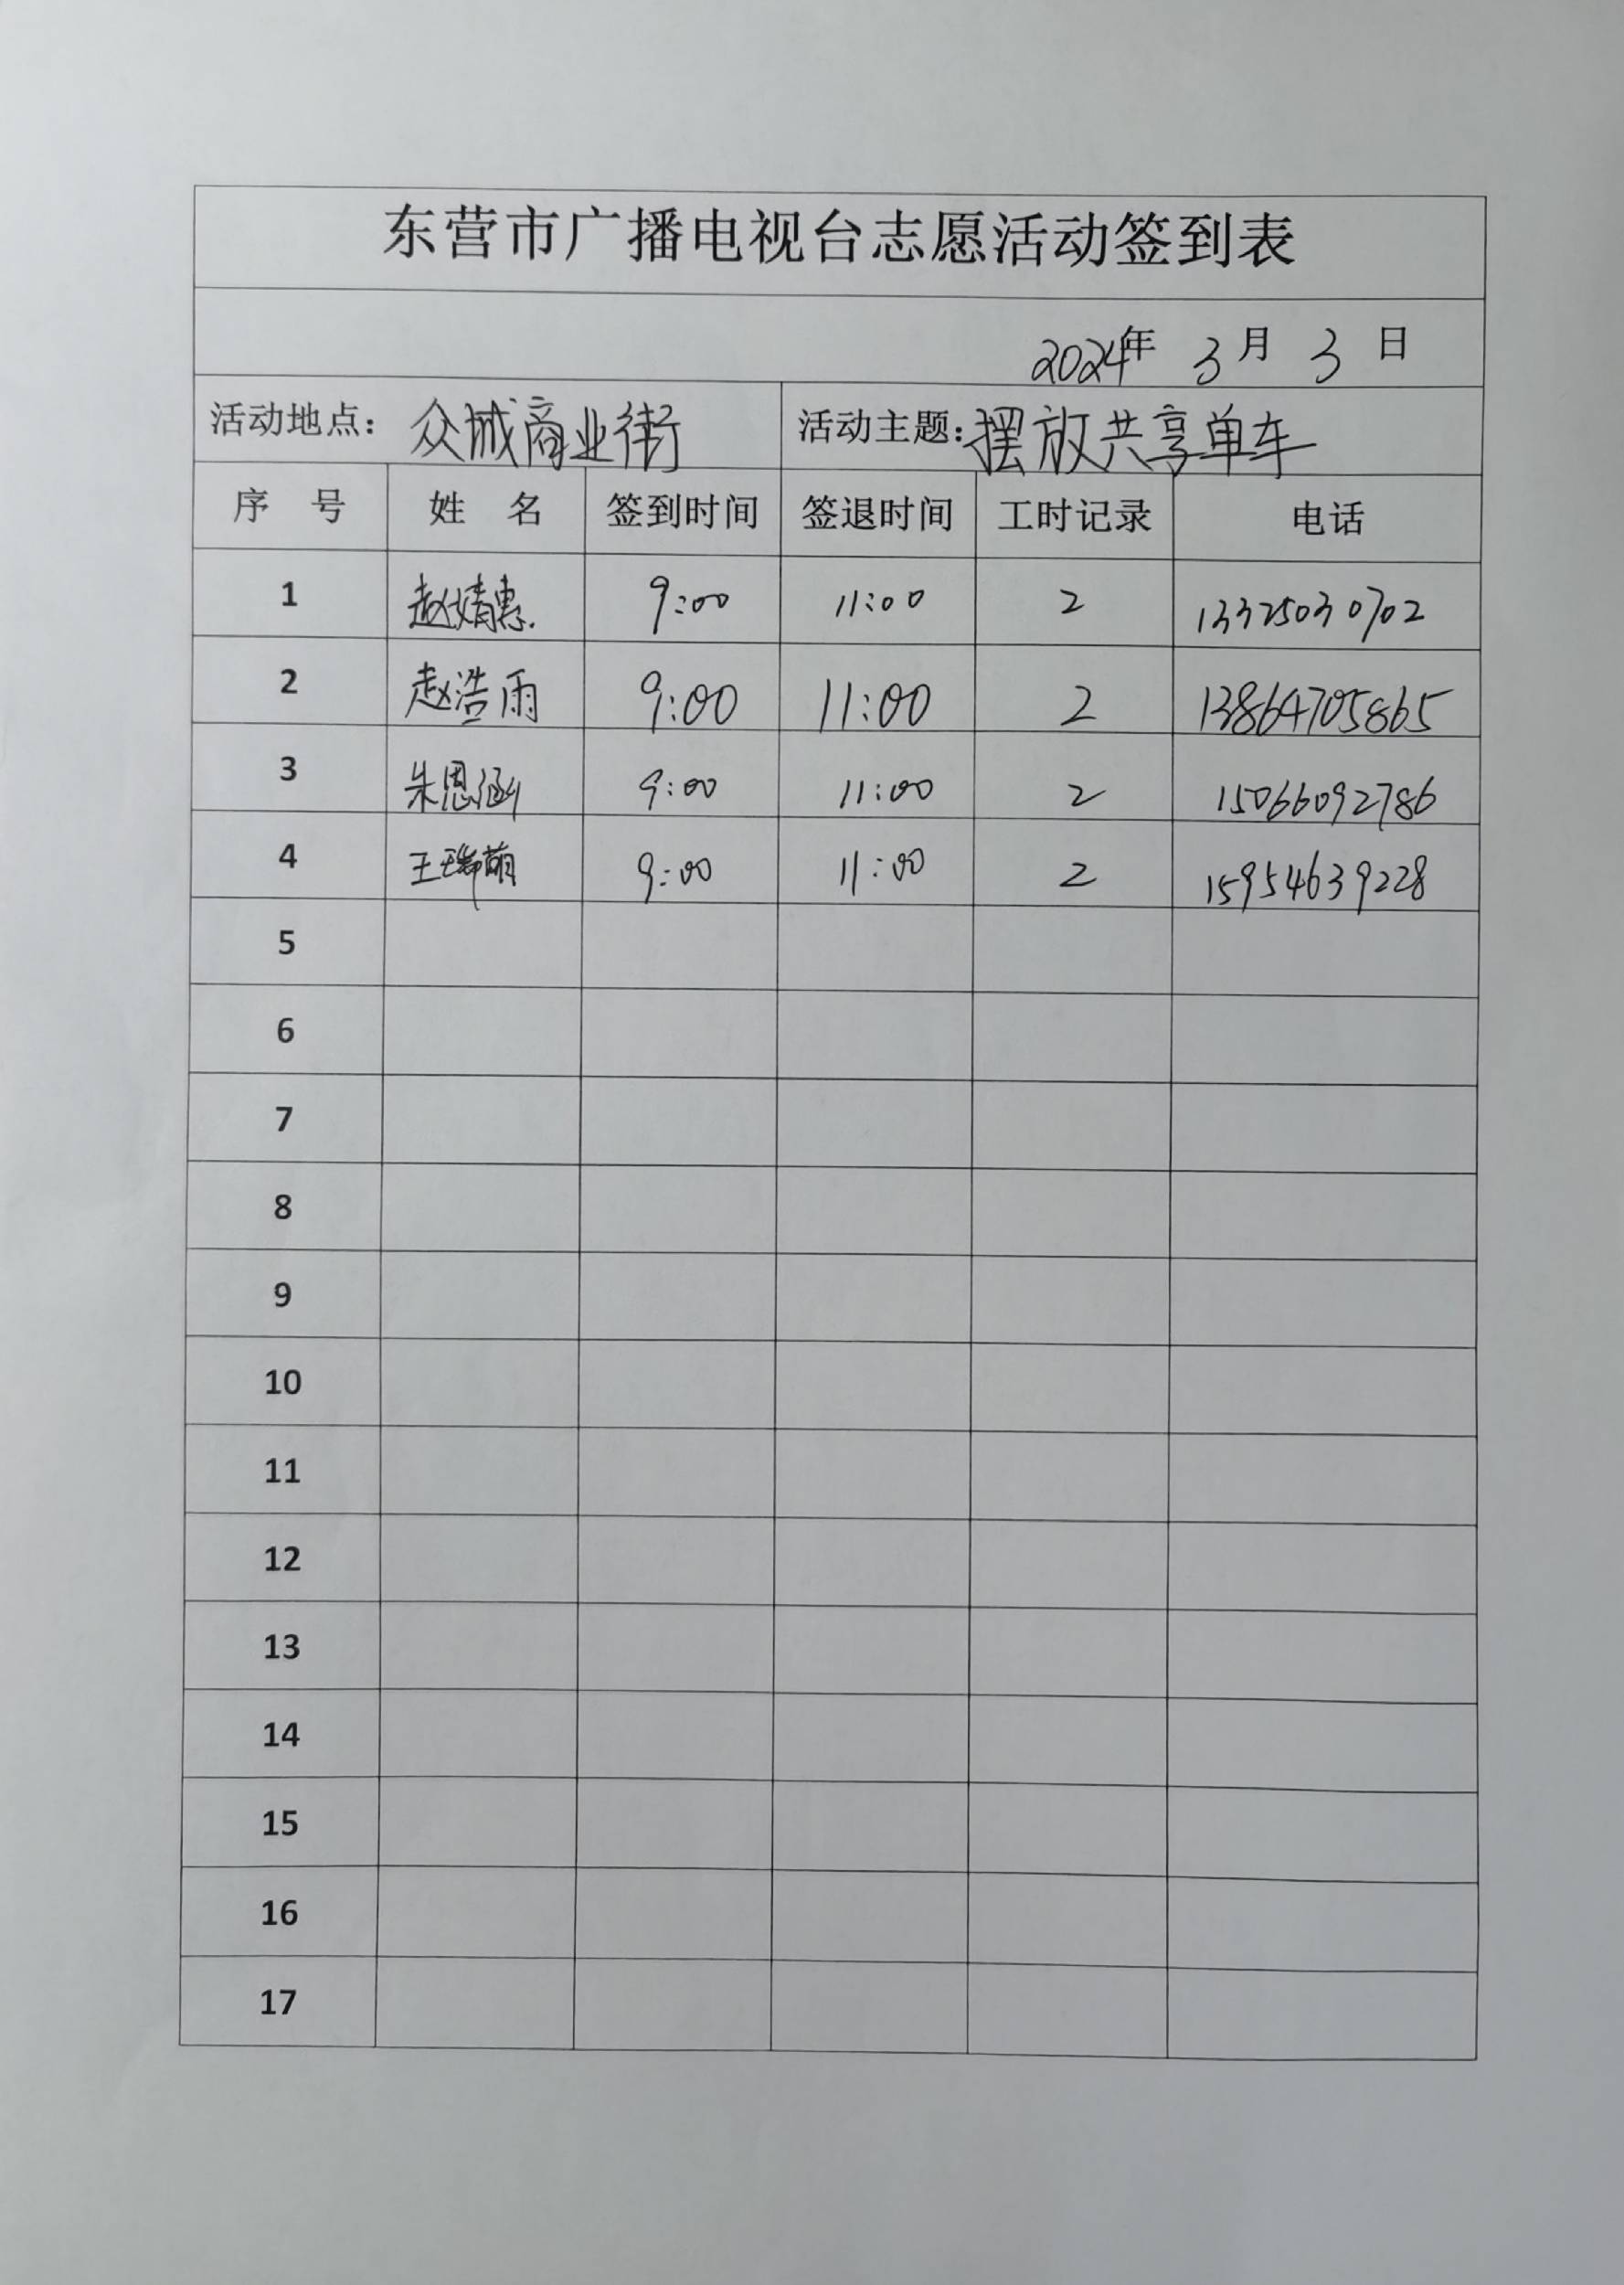 东营市广播电视台志愿活动签到表
2024年 3月 3日
活动地点：众城商业街 活动主题：摆放共享单车
序号 姓名 签到时间 签退时间 工时记录 电话
1 赵婧惠 9:00 11:00 2 13325030702
2 赵浩雨 9:00 11:00 2 13864705865
3 朱恩涵 9:00 11:00 2 15066092786
4 王瑞萌 9:00 11:00 2 15954639228
5
6
7
8
9
10
11
12
13
14
15
16
17